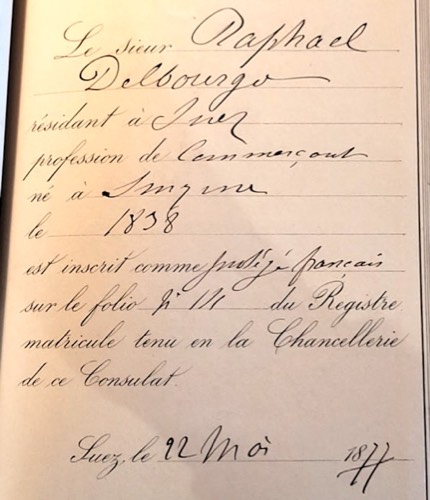 Le sieur Raphael
Delbourgo
résidant à Suez
profession de Commerçant
né à Smyrne
le 1838
est inscrit comme protégé français
sur le folio du Régistre
matricule tenu en la Chancellerie
de ce Consulat.
Suez, le 22 Mai 1877